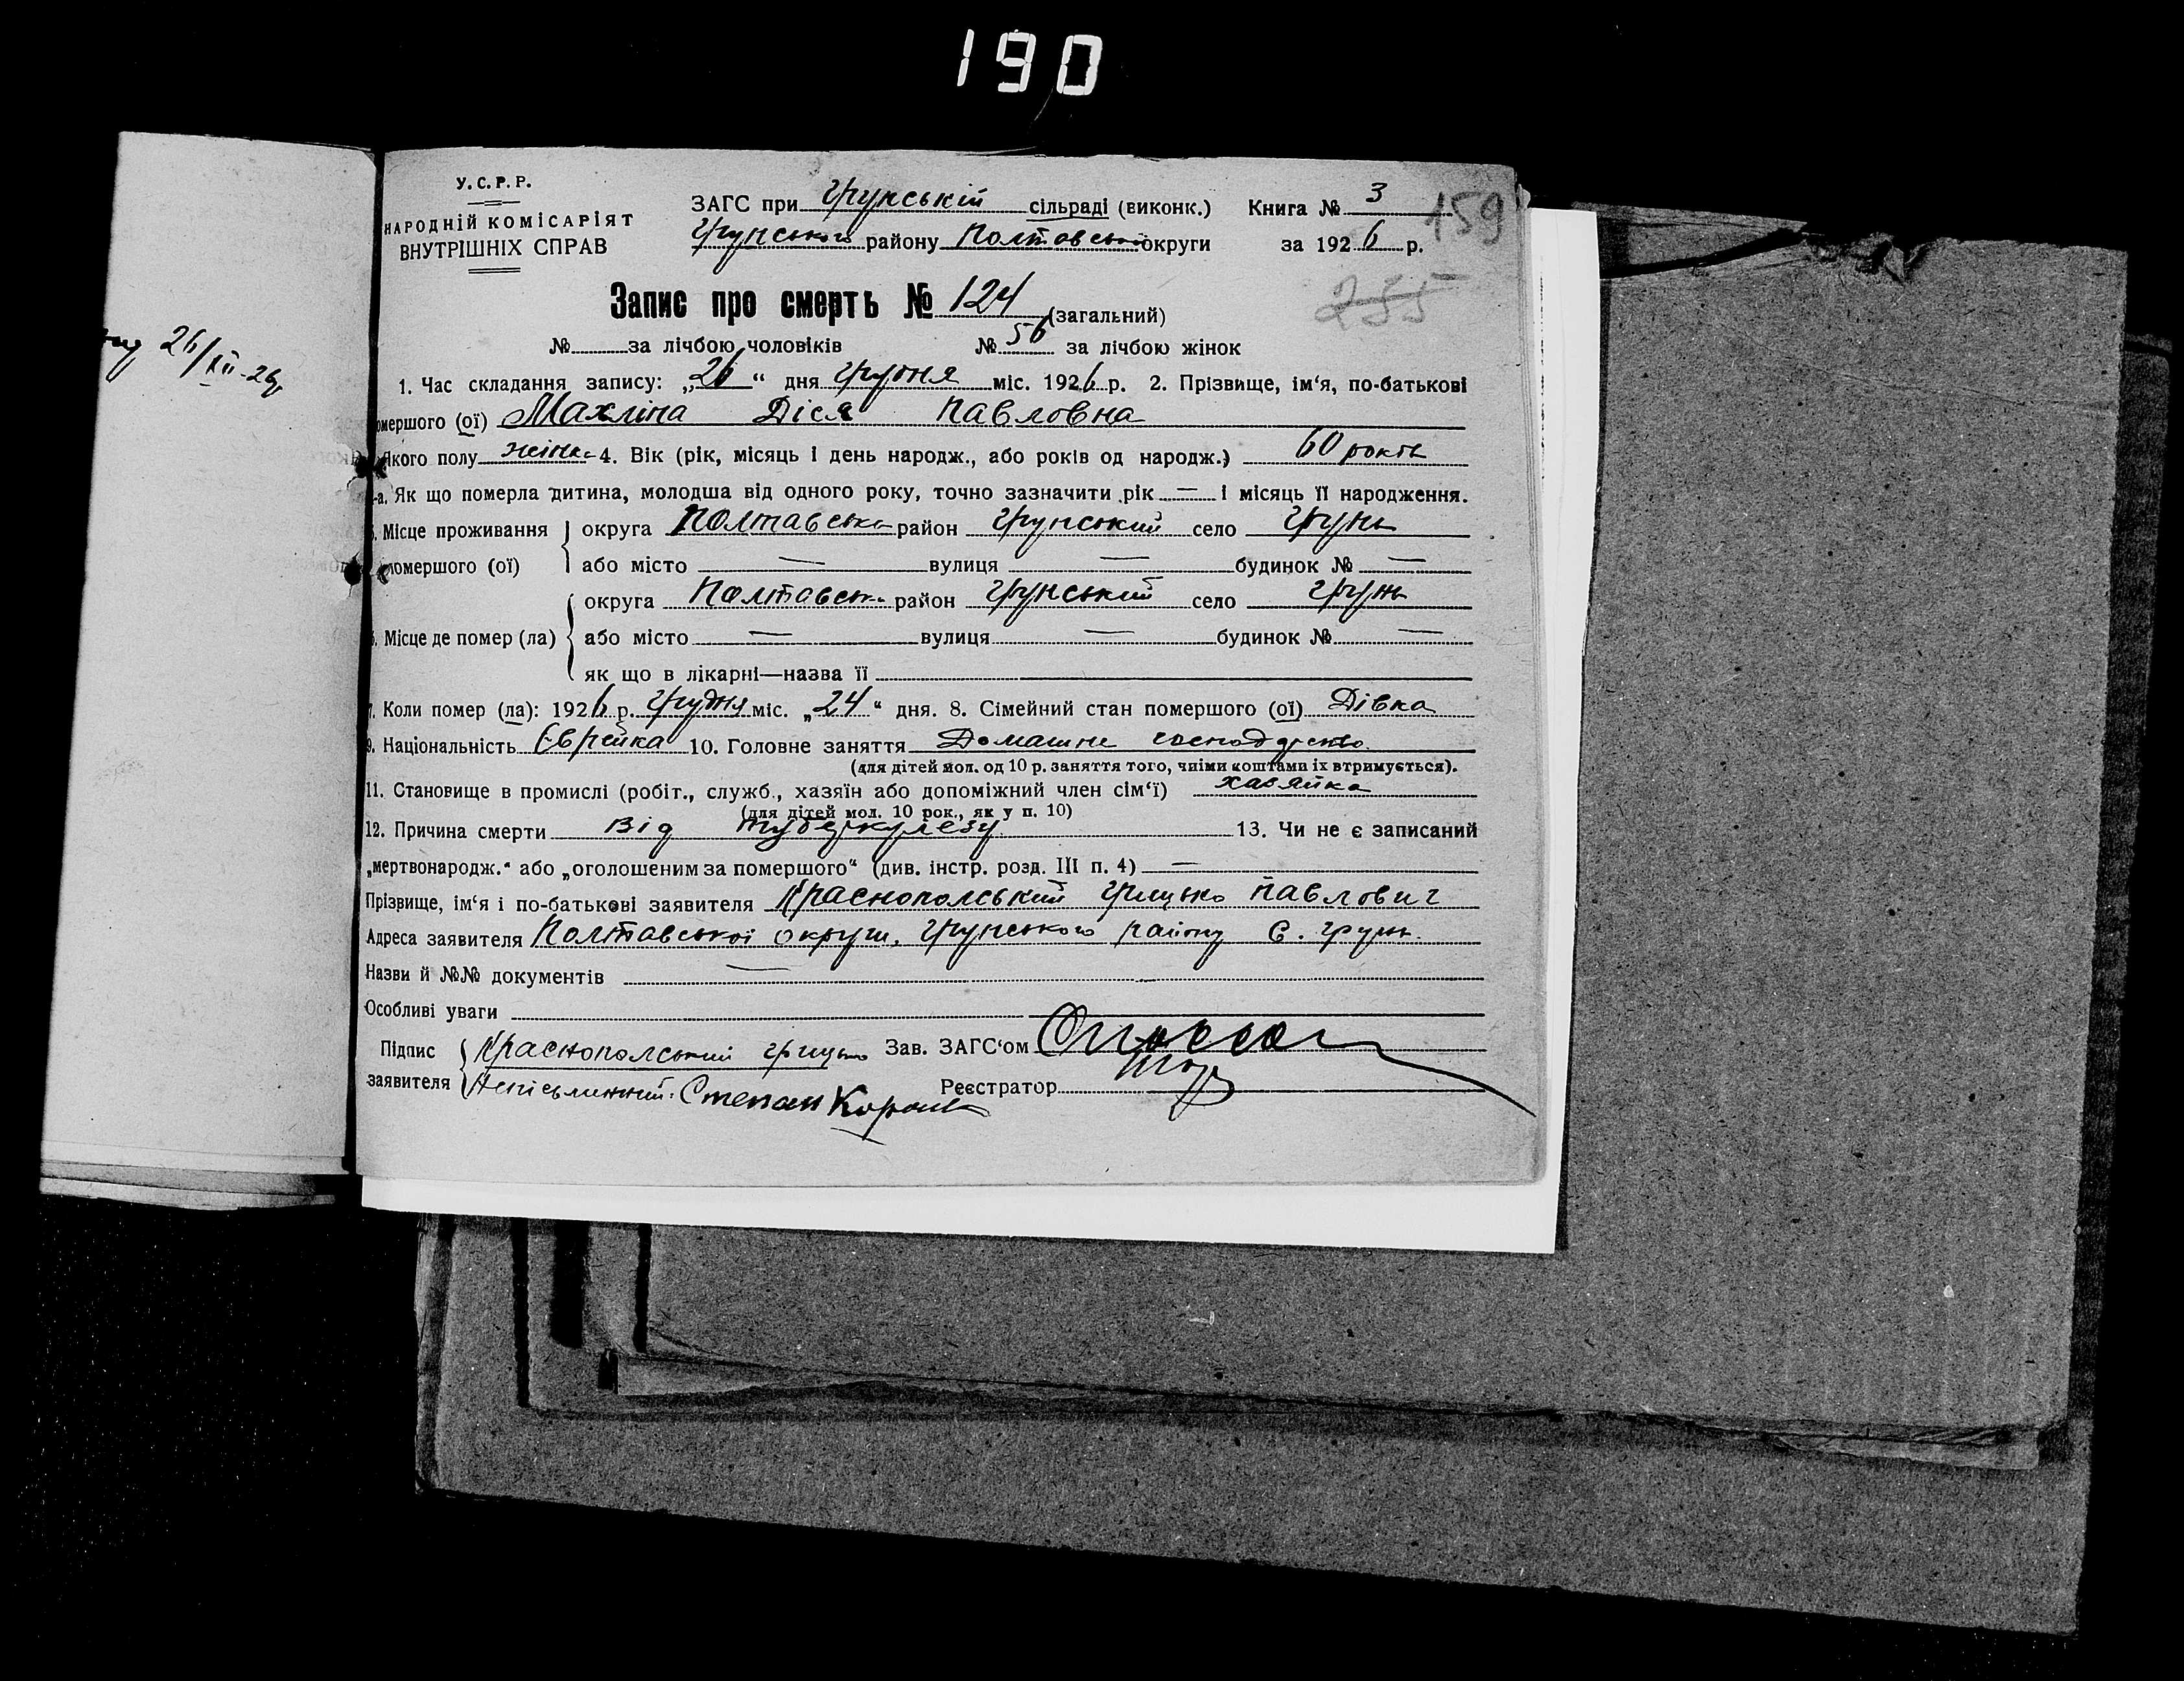 190
У.С.Р.Р.
НАРОДНІЙ КОМІСАРІЯТ
ВНУТРІШНІХ СПРАВ
ЗАГС при Грунській сільраді (виконк.) Книга № 3
Грунського району Полтавської округи за 1926 р.
159
235
Запис про смерть № 124 (загальний)
№ за лічбою чоловіків № 56 за лічбою жінок
26/XII-26р
1. Час складання запису: „26“ дня Грудня міс. 1926 р. 2. Прізвище, ім‘я, по-батькові
омершого (ої) Махліна Діся Павловна
Якого полу жіноч 4. Вік (рік, місяць і день народж., або років од народж.) 60 років
-а. Як що померла дитина, молодша від одного року, точно зазначити рік — і місяць її народження.
5. Місце проживання округа Полтавська район Грунський село Грунь
помершого (ої) або місто — вулиця — будинок № —
округа Полтавськ район Грунський село Грунь
6. Місце де помер (ла) або місто — вулиця — будинок № —
як що в лікарні—назва її
7. Коли помер (ла): 1926 р. Грудня міс. „24“ дня. 8. Сімейний стан помершого (ої) Дівка
9. Національність Єврейка 10. Головне заняття Домашне господарство
(для дітей мол. од 10 р. заняття того, чиїми коштами їх втримується).
11. Становище в промислі (робіт., служб., хазяїн або допоміжний член сім‘ї) хазяйка
(для дітей мол. 10 рок., як у п. 10)
12. Причина смерти Від туберкулезу 13. Чи не є записаний
„мертвонародж.“ або „оголошеним за помершого“ (див. інстр. розд. III п. 4) —
Прізвище, ім‘я і по-батькові заявителя Краснопольський Грицько Павлович
Адреса заявителя Полтавської округи, Грунського району С. Грунь.
Назви й №№ документів —
Особливі уваги
Підпис Краснопольский Грицько Зав. ЗАГС‘ом
заявителя Неписьменний. Степан Реєстратор